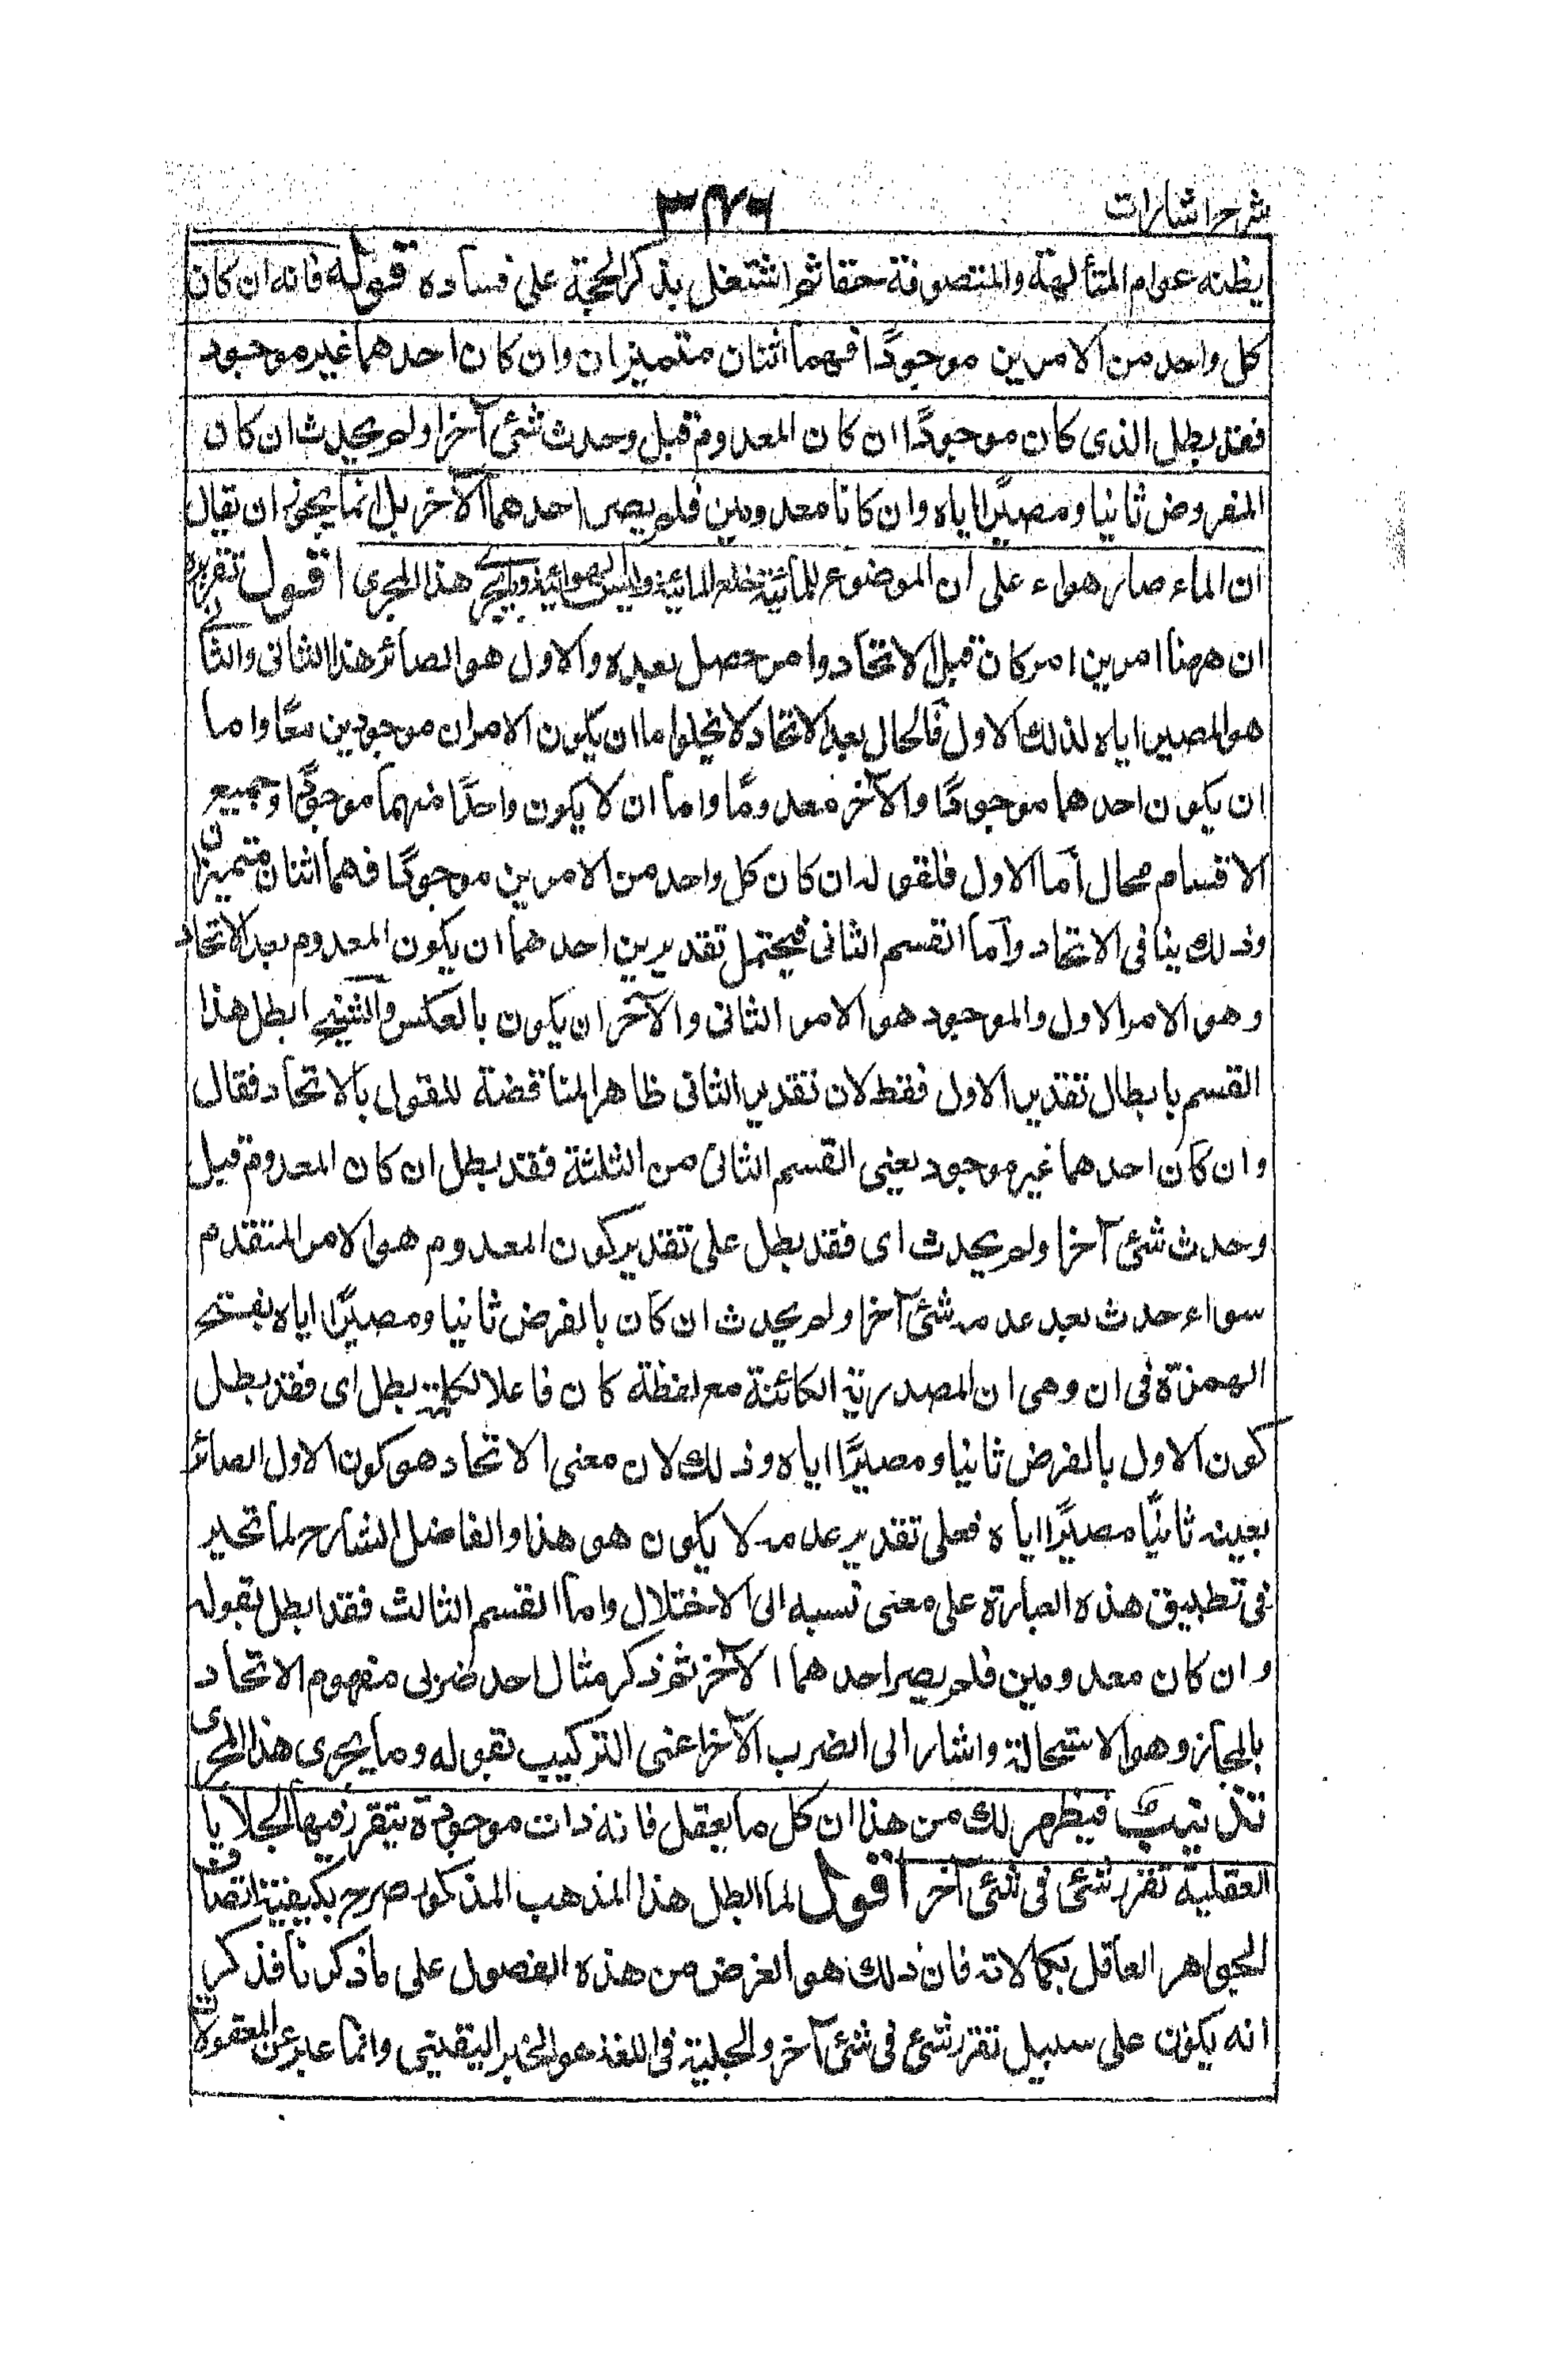 شرح اشارات
٣٧٦
يظنه عوام المتألهة والمتصوفة حقا ثم اشتغل بذكر الحجة على فساده قوله فانه ان كان
كل واحد من الامرين موجودًا فهما اثنان متميزان وان كان احدهما غير موجود
فقد بطل الذى كان موجودًا ان كان المعدوم قبل وحدث شئ آخر او لم يحدث ان كان
المفروض ثانيا ومصيرًا اياه وان كانا معدومين فلم يصر احدهما الآخر بل انما يجوز ان تقال
ان الماء صار هواء على ان الموضوع للمائية خلع المائية ولبس الهوائية وما يجرى هذا المجرى اقول تقريره
ان ههنا امرين امر كان قبل الاتحاد وامر حصل بعده والاول هو الصائر هذا الثانى والثانى
هو المصير اياه لذلك الاول فالحال بعد الاتحاد لا يخلوا ما ان يكون الامران موجودين معًا واما
ان يكون احدهما موجودًا والآخر معدومًا واما ان لا يكون واحدًا منهما موجودًا وجميع
الاقسام محال أما الاول فلقوله ان كان كل واحد من الامرين موجودًا فهما اثنان متميزان
وذلك ينافى الاتحاد وأما القسم الثانى فيحتمل تقديرين احدهما ان يكون المعدوم بعد الاتحاد
وهو الامر الاول والموجود هو الامر الثانى والآخر ان يكون بالعكس والشيخ ابطل هذا
القسم بابطال تقدير الاول فقط لان تقدير الثانى ظاهر المناقضة للقول بالاتحاد فقال
وان كان احدهما غير موجود يعنى القسم الثانى من الثلثة فقد بطل ان كان المعدوم قبل
وحدث شئ آخر او لم يحدث اى فقد بطل على تقدير كون المعدوم هو الامر المتقدم
سواء حدث بعد عدمه شئ آخر او لم يحدث ان كان بالفرض ثانيا ومصيرًا اياه بفتح
الهمزة فى ان وهى ان المصدرية الكائنة مع لفظة كان فاعلا لكلمة بطل اى فقد بطل
كون الاول بالفرض ثانيا ومصيرًا اياه وذلك لان معنى الاتحاد هو كون الاول الصائر
بعينه ثانيًا مصيرًا اياه فعلى تقدير عدمه لا يكون هو هذا والفاضل الشارح لما تحير
فى تطبيق هذه العبارة على معنى نسبه الى الاختلال واما القسم الثالث فقد ابطل بقوله
وان كان معدومين فلم يصر احدهما الآخر ثم ذكر مثال احد ضربى مفهوم الاتحاد
بالمجاز وهو الاستحالة واشار الى الضرب الآخر اعنى التركيب بقوله وما يجرى هذا المجرى
تذنيب فيظهر لك من هذا ان كل ما يعقل فانه ذات موجودة يتقرر فيها الجلايا
العقلية تقرر شئ فى شئ آخر اقول لما ابطل هذا المذهب المذكور صرح بكيفية اتصاف
الجواهر العاقل بكمالاته فان ذلك هو الغرض من هذه الفصول على ما ذكرنا فذكر
انه يكون على سبيل تقرر شئ فى شئ آخر والجلية فى اللغة هو الخبر اليقينى وانما عبر عن المعقولات